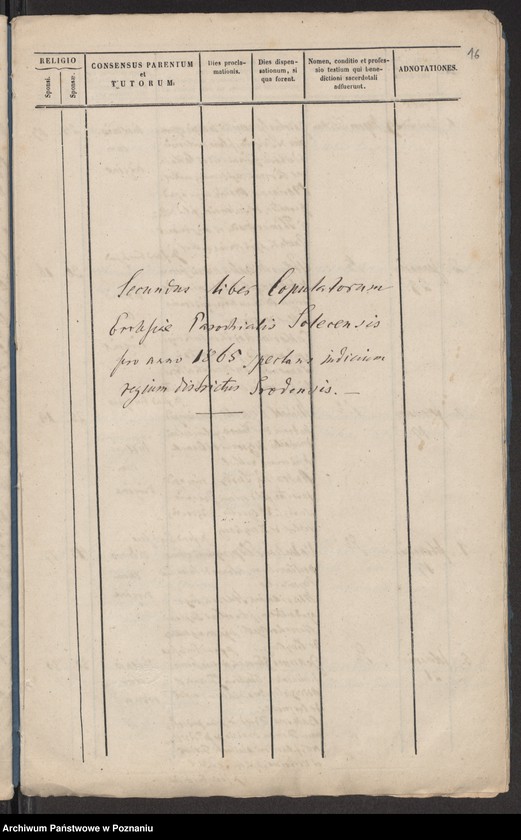 16
RELIGIO
Sponsi.
Sponsæ.
CONSENSUS PARENTUM
et
TUTORUM.
Dies procla-
mationis.
Dies dispen-
sationum, si
quæ forent.
Nomen, conditio et profes-
sio testium qui bene-
dictioni sacerdotali
adfuerunt.
ADNOTATIONES.
Secundus liber Copulatorum
Ecclesiæ Parochialis Solecensis
pro anno 1865 spectans indicium
regium districtus Srodensis. —
Archiwum Państwowe w Poznaniu